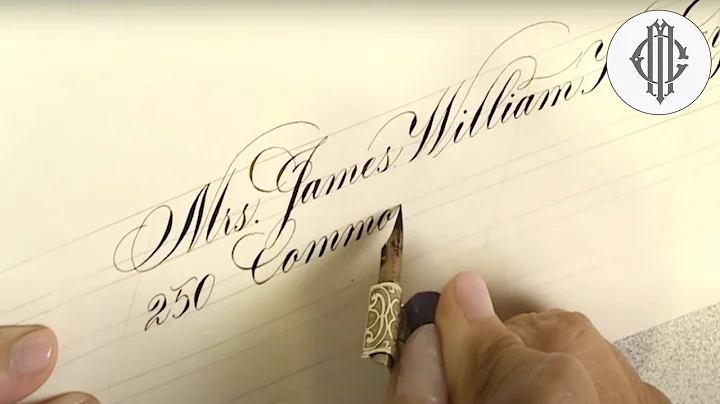 Mrs. James William
250 Commo